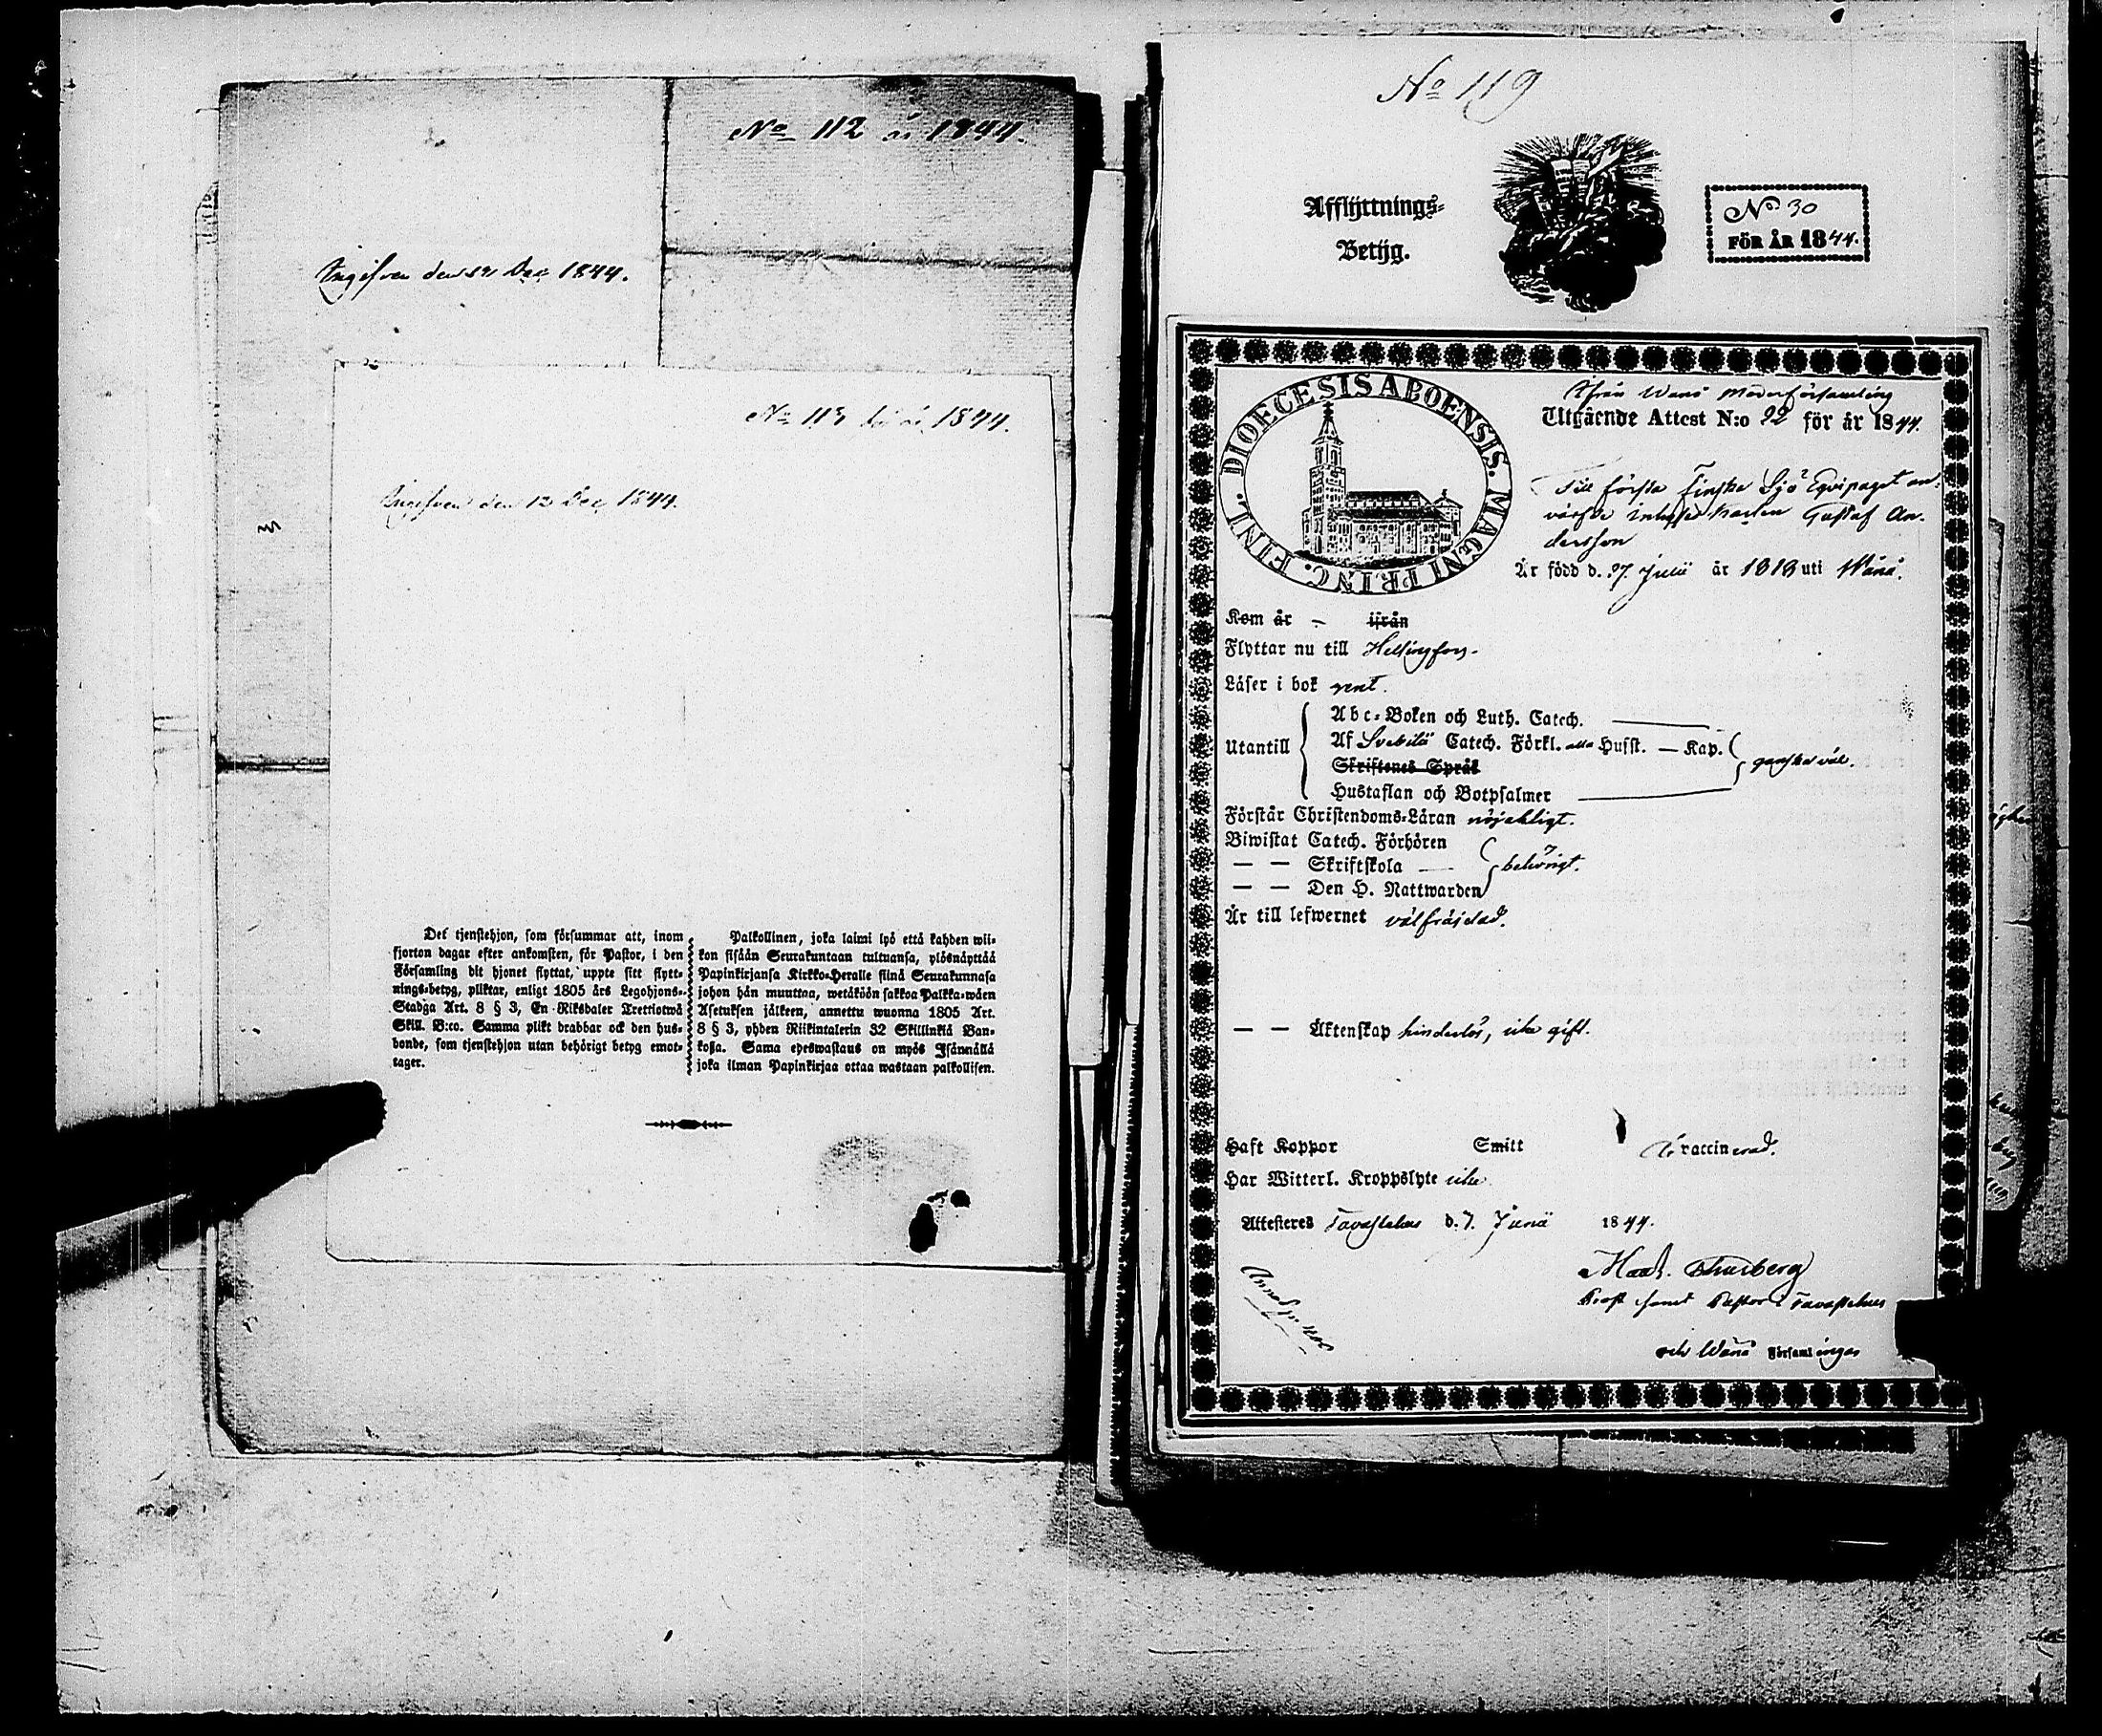 No 112 år 1844.
Ingifven den 14 Dec 1844.
No 113 1844.
Ingifven den 12 Dec 1844.
Det tjenstehjon, som försummar att, inom
fjorton dagar efter ankomsten, för Pastor, i den
Församling dit hjonet flyttat, uppte sitt flytt-
nings-betyg, pliktar, enligt 1805 års Legohjons-
Stadga Art. 8 § 3, En Riksdaler Trettiotwå
Skill. B:co. Samma plikt drabbar ock den hus-
bonde, som tjenstehjon utan behörigt betyg emot-
tager.
Palkollinen, joka laimi lyö että kahden wii-
kon sisään Seurakuntaan tultuansa, ylösnäyttää
Papinkirjansa Kirkko-Heralle siinä Seurakunnasa
johon hän muuttaa, wetäköön sakkoa Palkka-wäen
Asetuksen jälkeen, annettu wuonna 1805 Art.
8 § 3, yhden Riikintalerin 32 Skillinkiä Ban-
koßa. Sama edeswastaus on myös Isännällä
joka ilman Papinkirjaa ottaa wastaan palkollisen.
No 119
Afflyttnings-
Betyg.
No 30
FÖR ÅR 1844.
DIOECESIS ABOENSIS. MAGNI PRINC. FINL.
Ifrån Wånå Moderförsamling
Utgående Attest N:o 22 för år 1844.
Till första Finska Sjö Eqvipaget an-
Gustaf An-
dersson
Är född d. 27. Julii år 1818 uti Wånå.
Kom år - ifrån
Flyttar nu till Helsingfors.
Läser i bok rent.
Utantill
Abc-Boken och Luth. Catech.
Af Svebilii Catech. Förkl. alla Husst. — Kap.
Skriftenes Språk
Hustaflan och Botpsalmer
ganska väl.
Förstår Christendoms-Läran nöjaktigt.
Biwistat Catech. Förhören
— — Skriftskola
— — Den H. Nattwarden
behörigt.
Är till lefwernet välfräjdad.
— — Äktenskap hinderlös, icke gift.
Haft Koppor Smitt Är vaccinerad.
Har Witterl. Kroppslyte icke
Attesteres Tavastehus d. 7. Junii 1844.
Prost samt Pastor i Tavastehus
och Wånå Församlingar